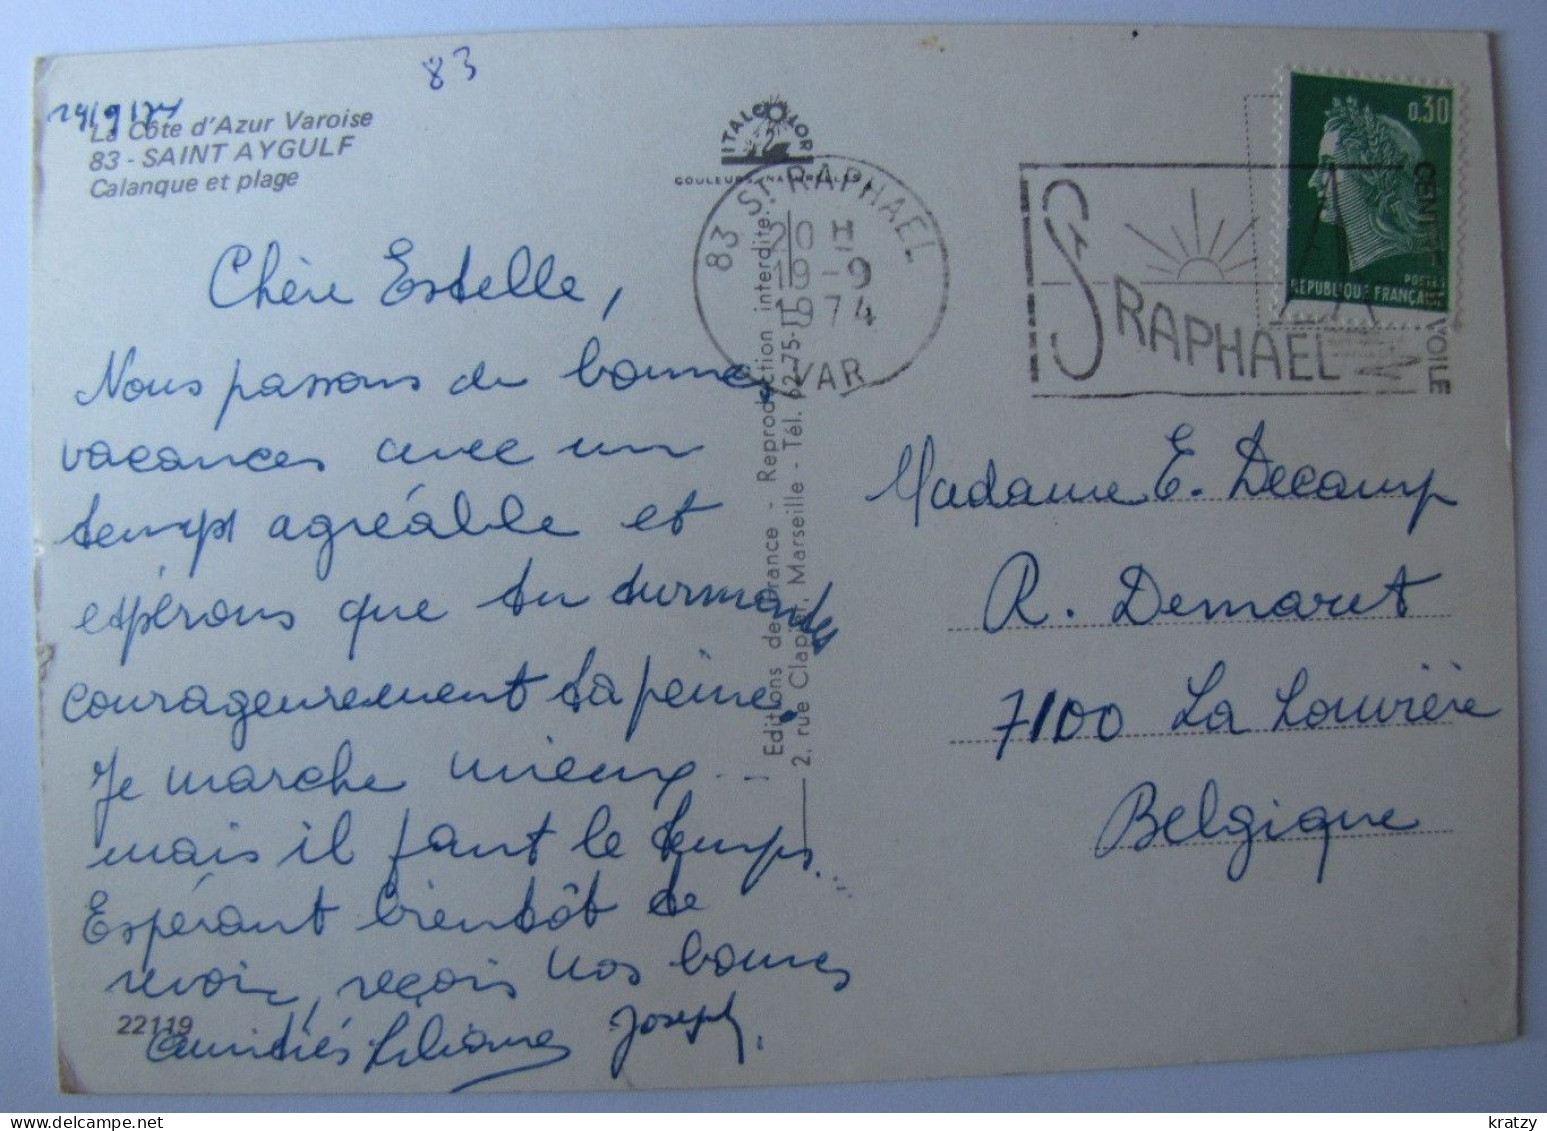 83
La Côte d'Azur Varoise
83 - SAINT AYGULF
Calanque et plage
Chère Estelle,
Nous passons de bonnes
vacances avec un
temps agréable et
espérons que tu surmontes
courageusement ta peine.
Je marche mieux ...
mais il faut le temps...
Espérant bientôt te
revoir, reçois nos bonnes
amitiés Liliane Joseph.
22119
ITALCOLOR
COULEURS NATURELLES
Editions de France - Reproduction interdite.
2, rue Clapier, Marseille - Tél. 62-75-11
83 ST RAPHAEL
20 H
19-9
1974
VAR
ST RAPHAEL
VOILE
0,30
POSTES
REPUBLIQUE FRANÇAISE
Madame E. Decamp
R. Demaret
7100 La Louvière
Belgique
kratzy